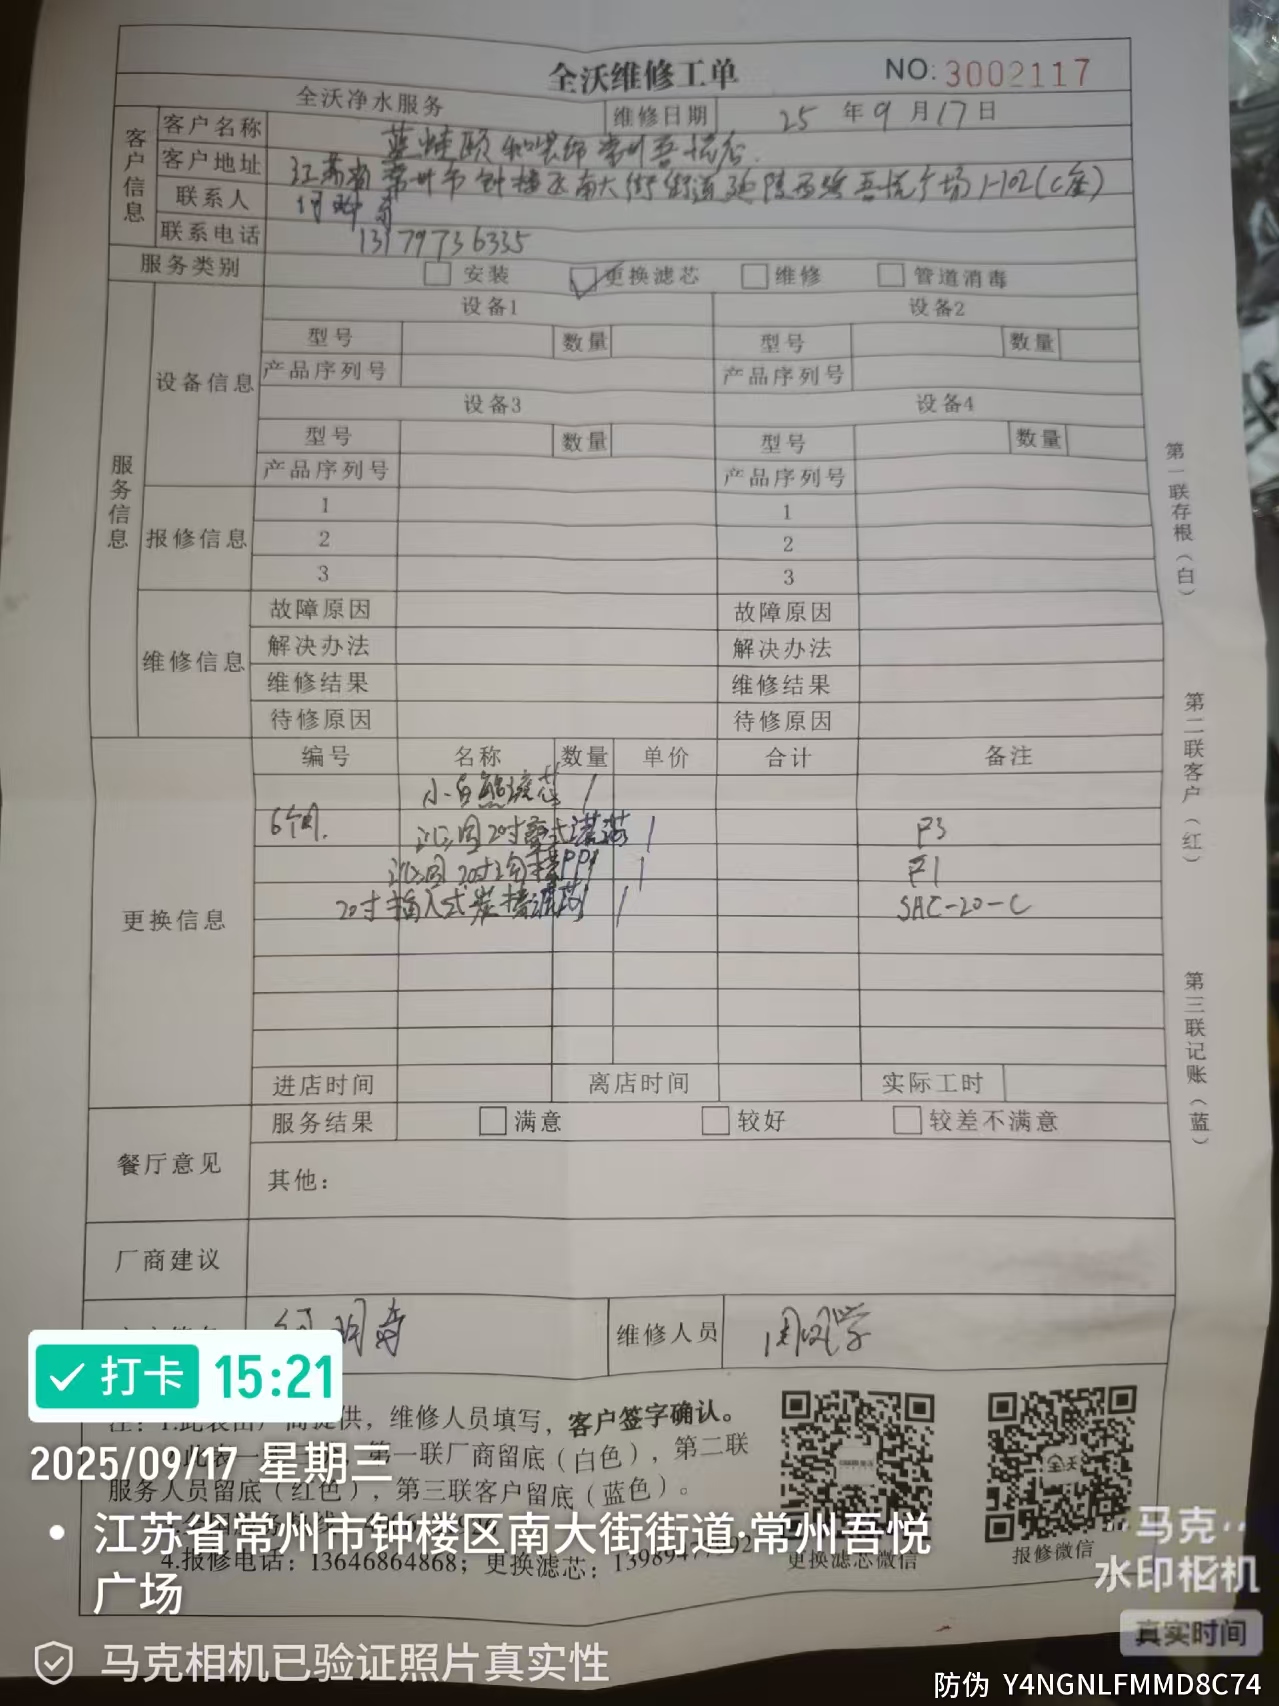 全沃维修工单 NO: 3002117
全沃净水服务 维修日期 25 年 9 月 17 日
客户信息
客户名称 常州吾悦店
客户地址 江苏省常州市钟楼区南大街街道延陵西路吾悦广场1-102(C座)
联系人
联系电话 13179736335
服务类别 安装 更换滤芯 维修 管道消毒
服务信息
设备信息
设备1 设备2
型号 数量 型号 数量
产品序列号 产品序列号
设备3 设备4
型号 数量 型号 数量
产品序列号 产品序列号
报修信息
1 1
2 2
3 3
维修信息
故障原因 故障原因
解决办法 解决办法
维修结果 维修结果
待修原因 待修原因
更换信息
编号 名称 数量 单价 合计 备注
小白熊滤芯 1
6个月. 20寸 滤芯 1 F3
20寸 PP 1 F1
20寸插入式炭棒滤芯 1 SHC-20-C
进店时间 离店时间 实际工时
餐厅意见
服务结果 满意 较好 较差不满意
其他：
厂商建议
维修人员
供，维修人员填写，客户签字确认。
第一联厂商留底（白色），第二联
服务人员留底（红色），第三联客户留底（蓝色）。
4.报修电话：13646864868；更换滤芯：
更换滤芯微信
报修微信
第一联存根（白）
第二联客户（红）
第三联记账（蓝）
打卡 15:21
2025/09/17 星期三
江苏省常州市钟楼区南大街街道·常州吾悦
广场
马克相机已验证照片真实性
马克
水印相机
真实时间
防伪 Y4NGNLFMMD8C74